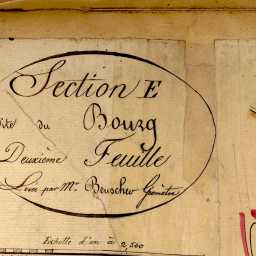 Section E
Dite du Bourg
Deuxième Feuille
Levé par Mr. Beuscher Géomètre
Echelle d'un à 2,500